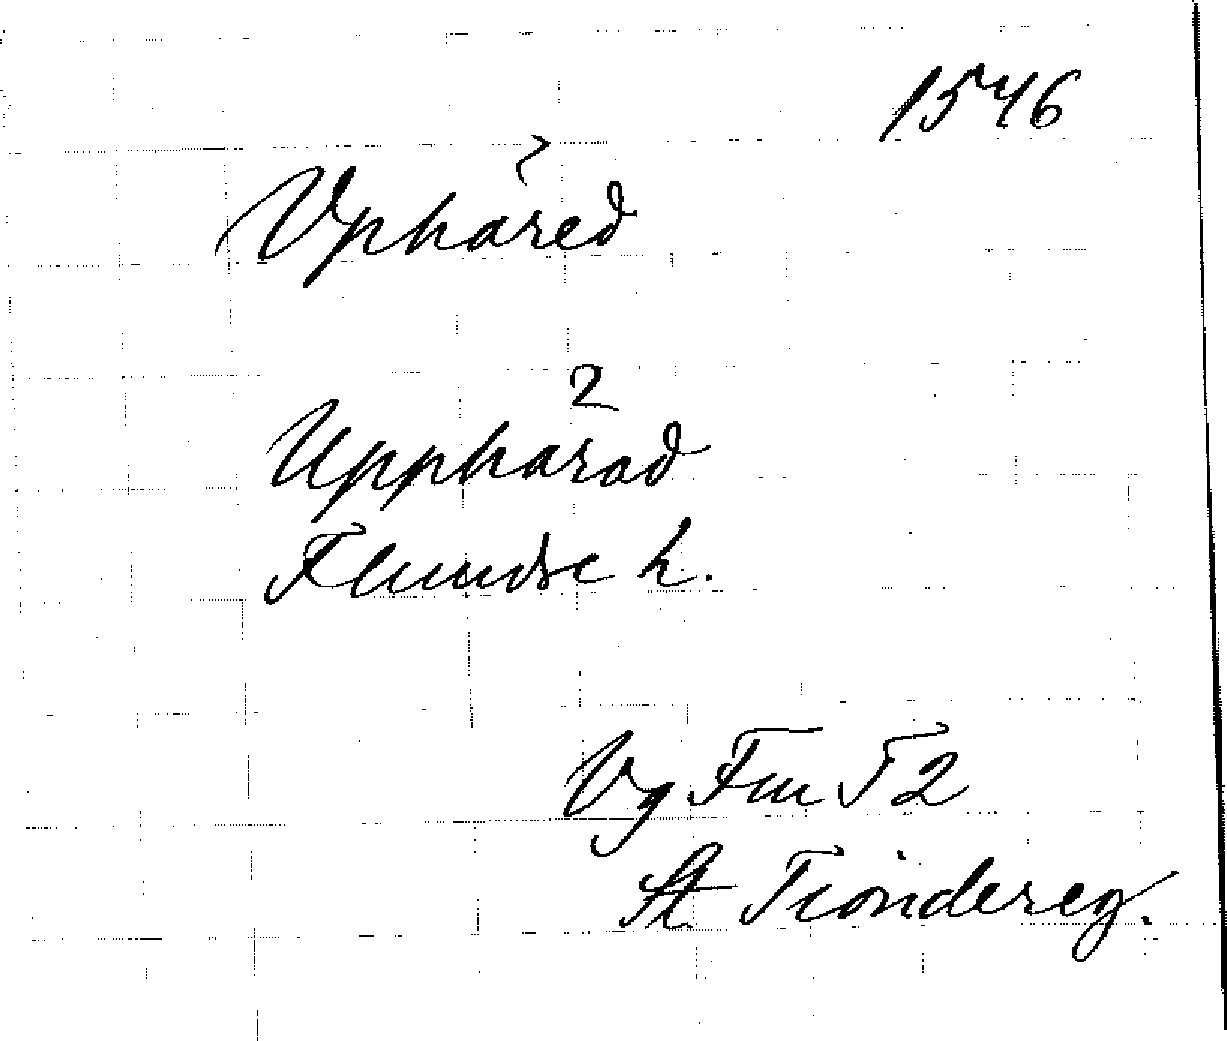 1546
Vphäred
2
Upphärad
Flundre h.
Vg Fm 52
St. Tiondereg.